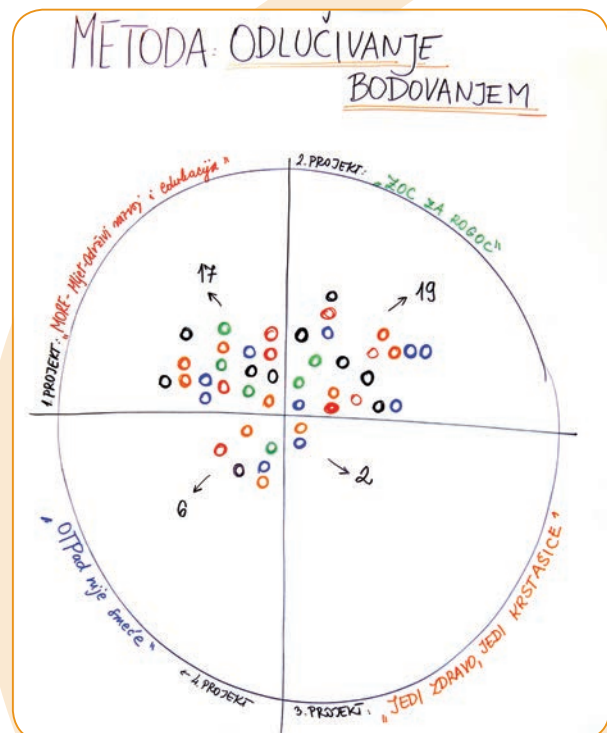 METODA: ODLUČIVANJE
BODOVANJEM
1. PROJEKT: "MORE-Mljet-Održivi razvoj i edukacija"
2. PROJEKT:
"ZOC ZA ROGOČ"
17
19
6
2
"OTPad nije smeće"
← 4. PROJEKT
3. PROJEKT: "JEDI ZDRAVO, JEDI KRSTAŠICE"